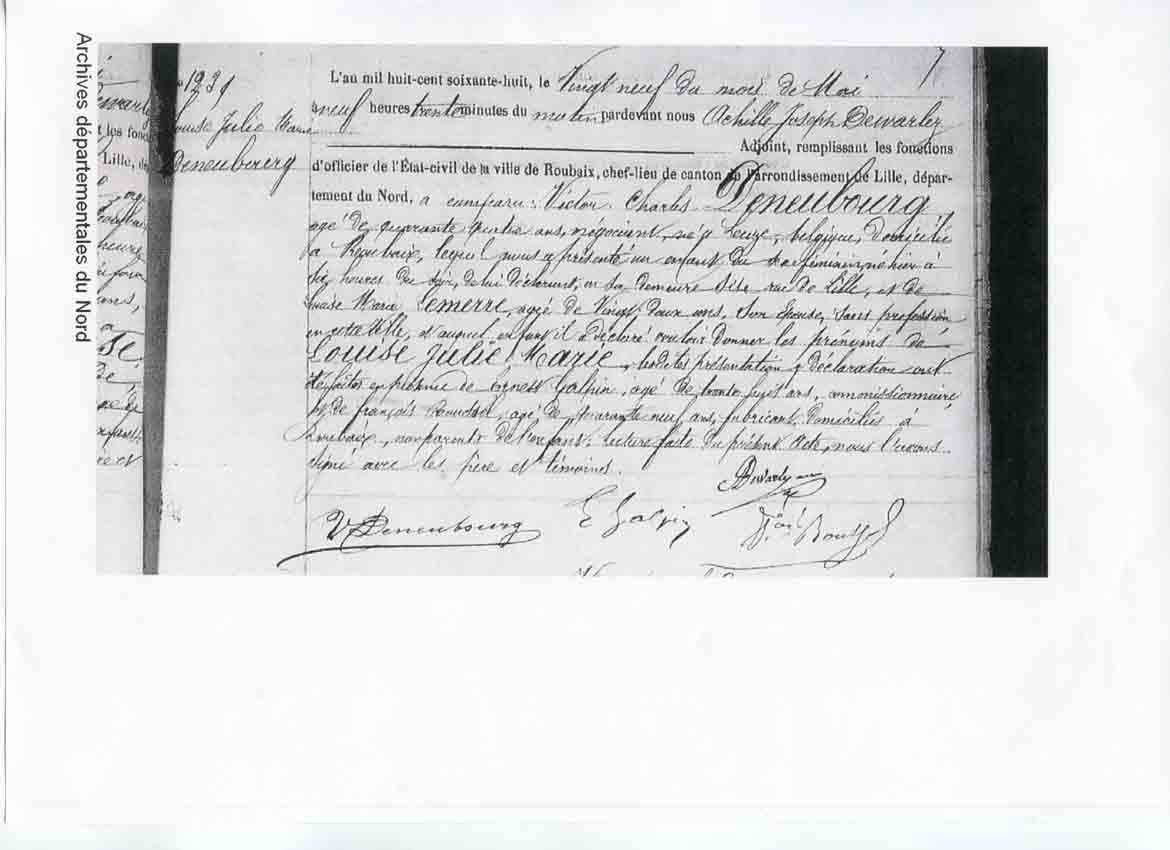 Archives départementales du Nord
1239
Louise Julie Marie
Deneubourg
7
L'an mil huit-cent soixante-huit, le Vingt neuf du mois de Mai
neuf heures trente minutes du matin pardevant nous Achille Joseph Dewarlez
Adjoint, remplissant les fonctions
d'officier de l'État-civil de la ville de Roubaix, chef-lieu de canton de l'arrondissement de Lille, dépar-
tement du Nord, a comparu : Victor Charles Deneubourg,
agé de quarante quatre ans, négociant, né à Leuze, belgique, domicilié
à Roubaix, lequel nous a présenté un enfant du sexe féminin, né hier à
dix heures du soir, de lui déclarant, en sa demeure sise rue de Lille, et de
Louise Marie Lemerre, agée de Vingt deux ans, Son épouse, sans profession
en cette Ville, et auquel enfant il a déclaré vouloir donner les prénoms de
Louise Julie Marie, lesdites présentation & déclaration ont
été faites en présence de Ernest Galpin, agé de trente sept ans, commissionnaire
& de françois Roussel, agé de quarante neuf ans, fabricant, domiciliés à
Roubaix, non parents de l'enfant. lecture faite du présent acte, nous l'avons
signé avec les père et témoins.
Dewarlez
V Deneubourg
E Galpin